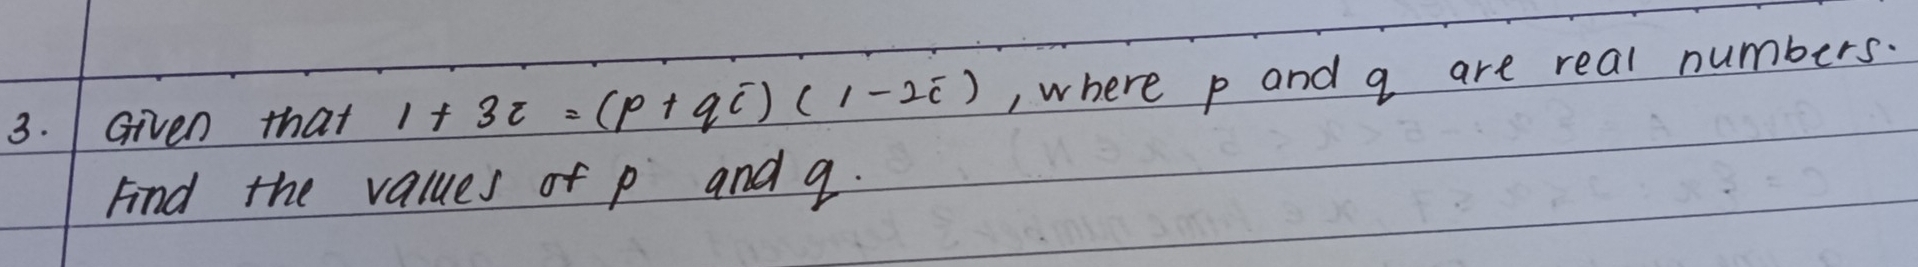 3. Given that 1 + 3i = (p + qi) (1 - 2i), where p and q are real numbers.
Find the values of p and q.